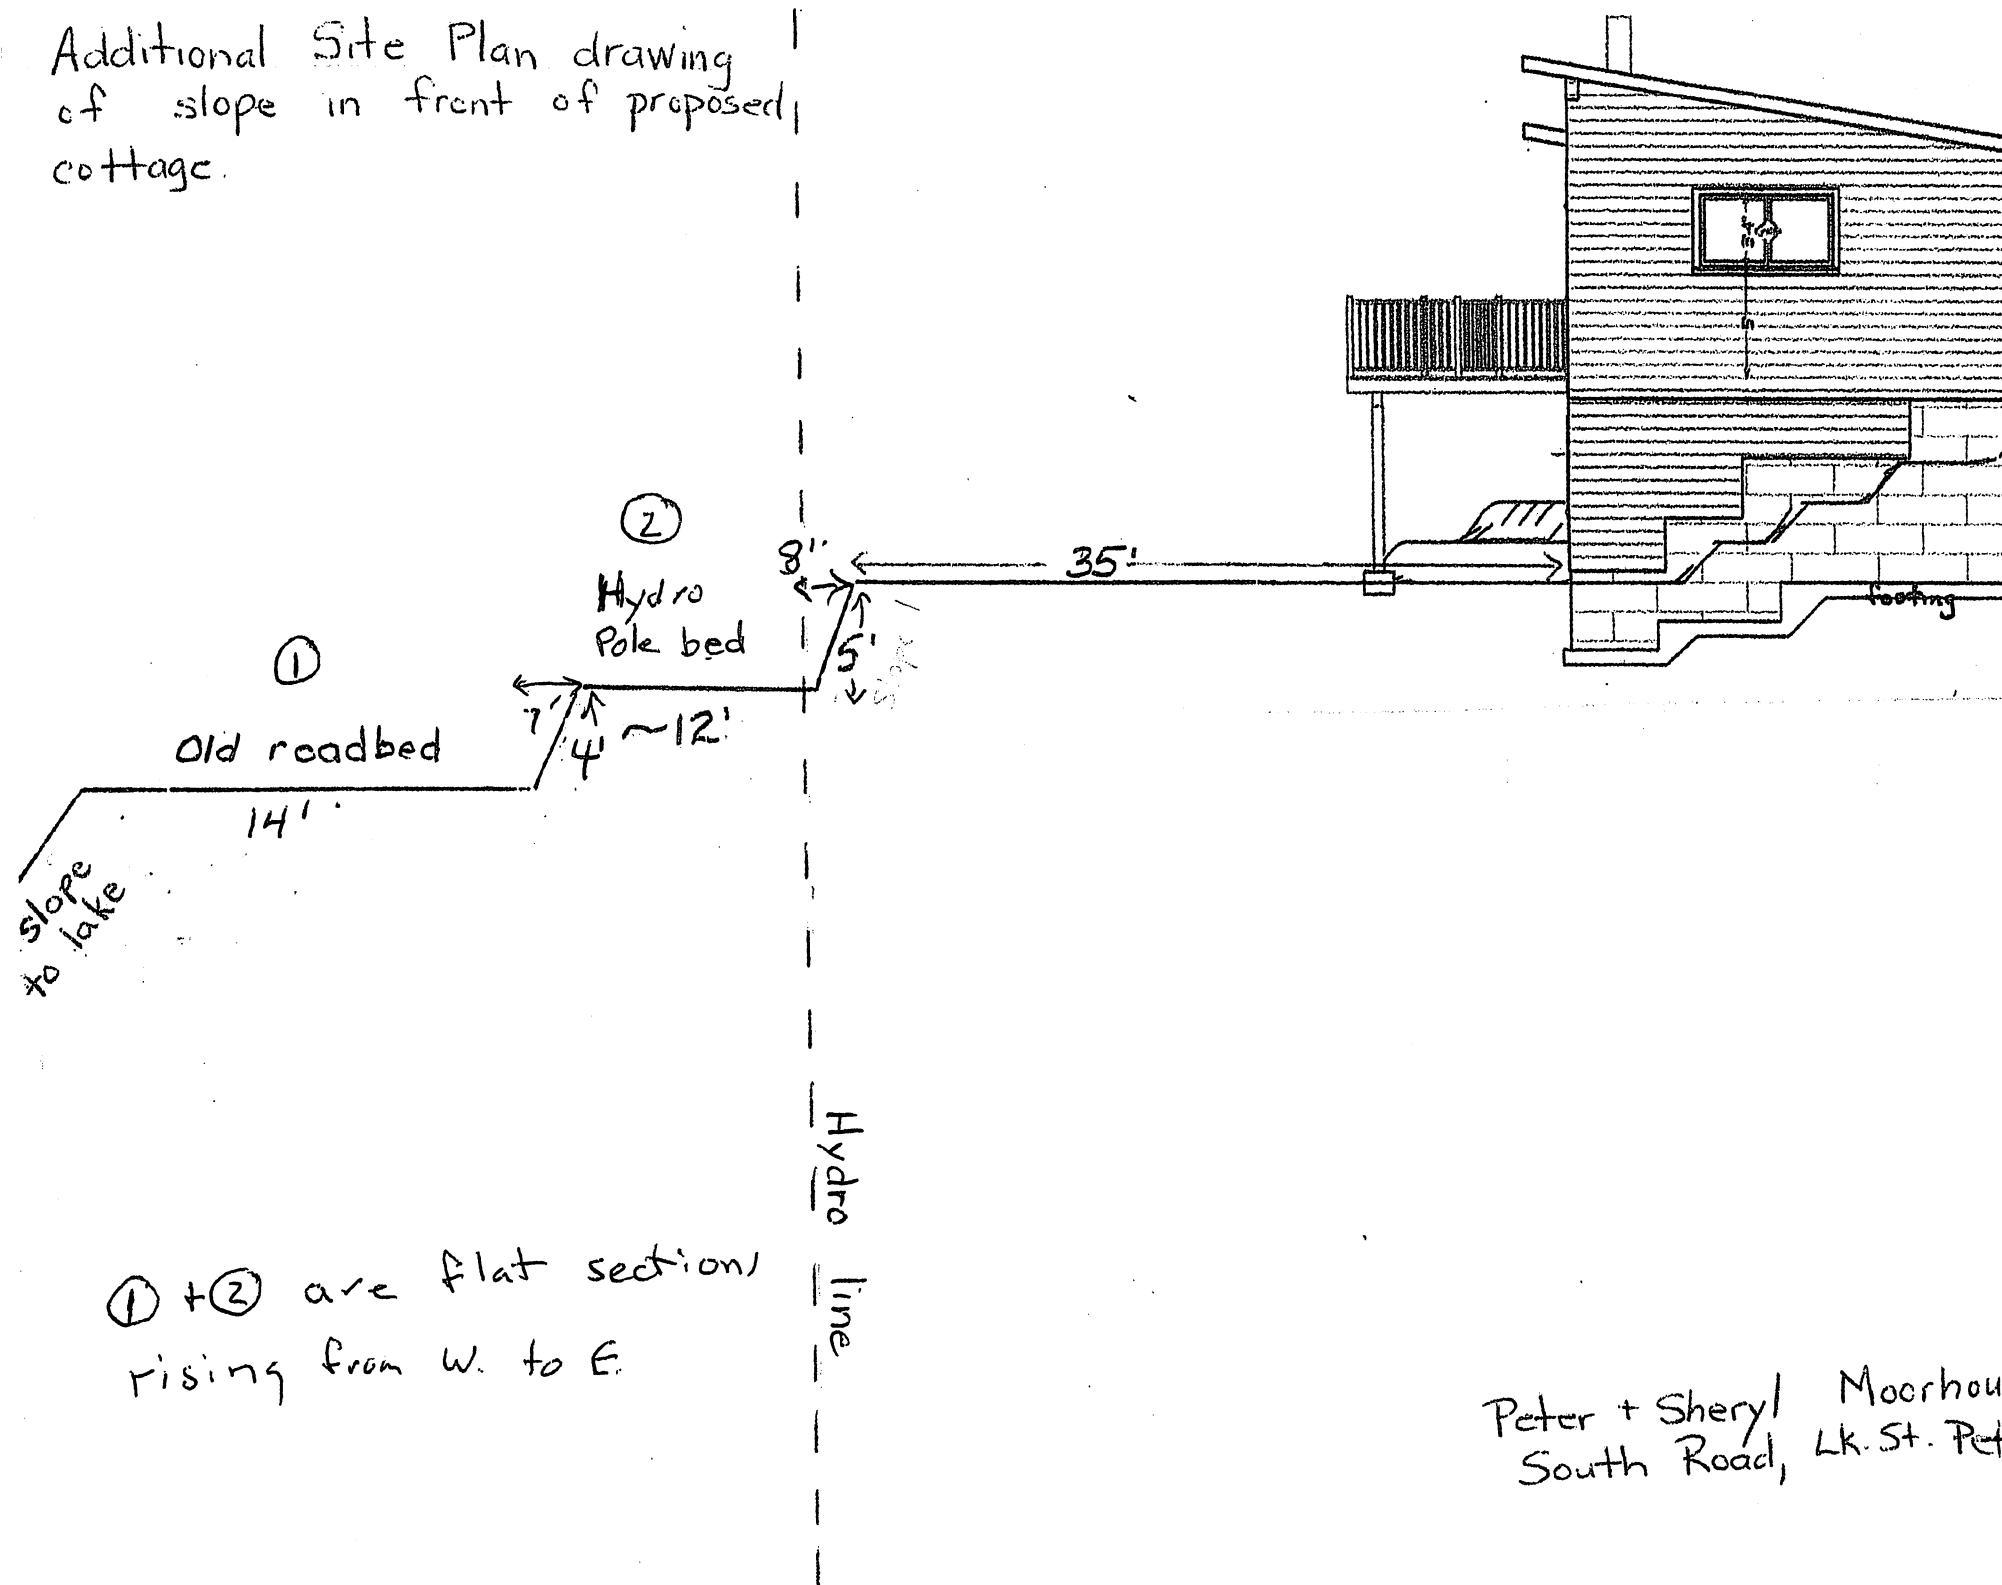 Additional Site Plan drawing
of slope in front of proposed
cottage.
2
8"
35'
Hydro
Pole bed
5'
slope
footing
1
7'
4'
~12'
Old roadbed
14'
slope
to lake
Hydro line
1 + 2 are flat sections
rising from W. to E.
Peter + Sheryl Moorhou
South Road, Lk. St. Pet